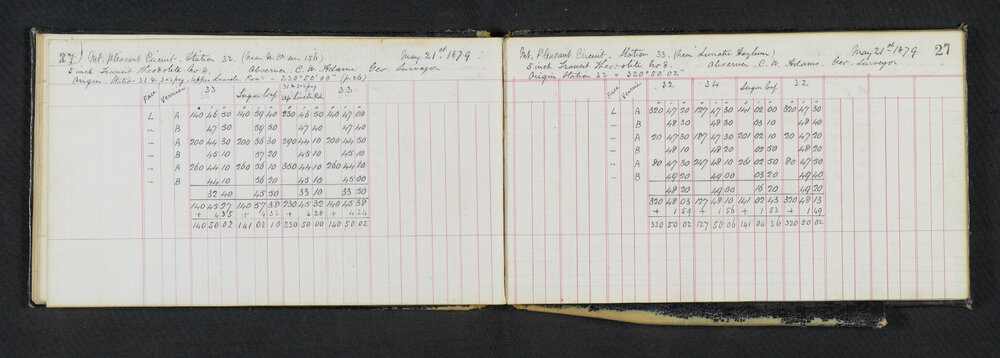 27) Mt. Pleasant Circuit. Station 32. (Near Sec. 156) May 21st 1879
5 inch Transit Theodolite No 2. Observer C. W. Adams. Geo. Surveyor
Origin Station 31 Upper Lincoln Road = 230°50'00" (p. 26)
Face Vernier 33 Sugar loaf Up. Lincoln Rd 33
L A 140 46 50 140 59 40 230 46 50 140 47 00
" B 47 50 59 50 47 40 47 40
" A 200 44 30 200 56 30 290 44 10 200 44 30
" B 45 10 57 20 45 10 45 10
" A 260 44 10 260 56 10 350 44 10 260 44 10
" B 44 10 56 20 45 10 45 00
32 40 45 50 33 10 33 50
140 45 27 140 57 38 230 45 32 140 45 38
+ 4 35 + 4 32 + 4 28 + 4 24
140 50 02 141 02 10 230 50 00 140 50 02
Mt. Pleasant Circuit. Station 33. (Near Lunatic Asylum) May 21st 1879 27
5 inch Transit Theodolite No 2. Observer C. W. Adams. Geo. Surveyor
Origin Station 32 = 320°50'02"
Face Vernier 32 34 Sugar loaf 32
L A 320 47 20 127 47 30 141 02 00 320 47 30
" B 48 30 48 30 03 10 48 40
" A 20 47 30 187 47 30 201 02 10 20 47 20
" B 48 10 48 20 02 50 48 20
" A 80 47 30 247 48 10 261 02 50 80 47 30
" B 49 20 49 00 03 20 49 40
48 20 49 00 16 20 49 20
320 48 03 127 48 10 141 02 43 320 48 13
+ 1 59 + 1 56 + 1 53 + 1 49
320 50 02 127 50 06 141 04 36 320 50 02